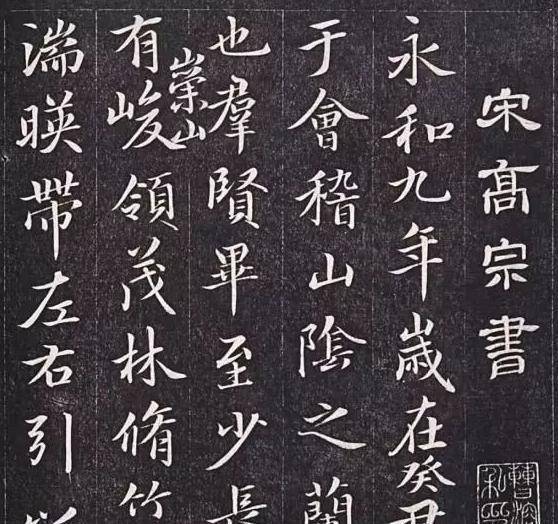 宋高宗書
永和九年歲在癸丑
于會稽山陰之蘭
也羣賢畢至少長
崇山
有峻領茂林脩竹
湍暎帶左右引